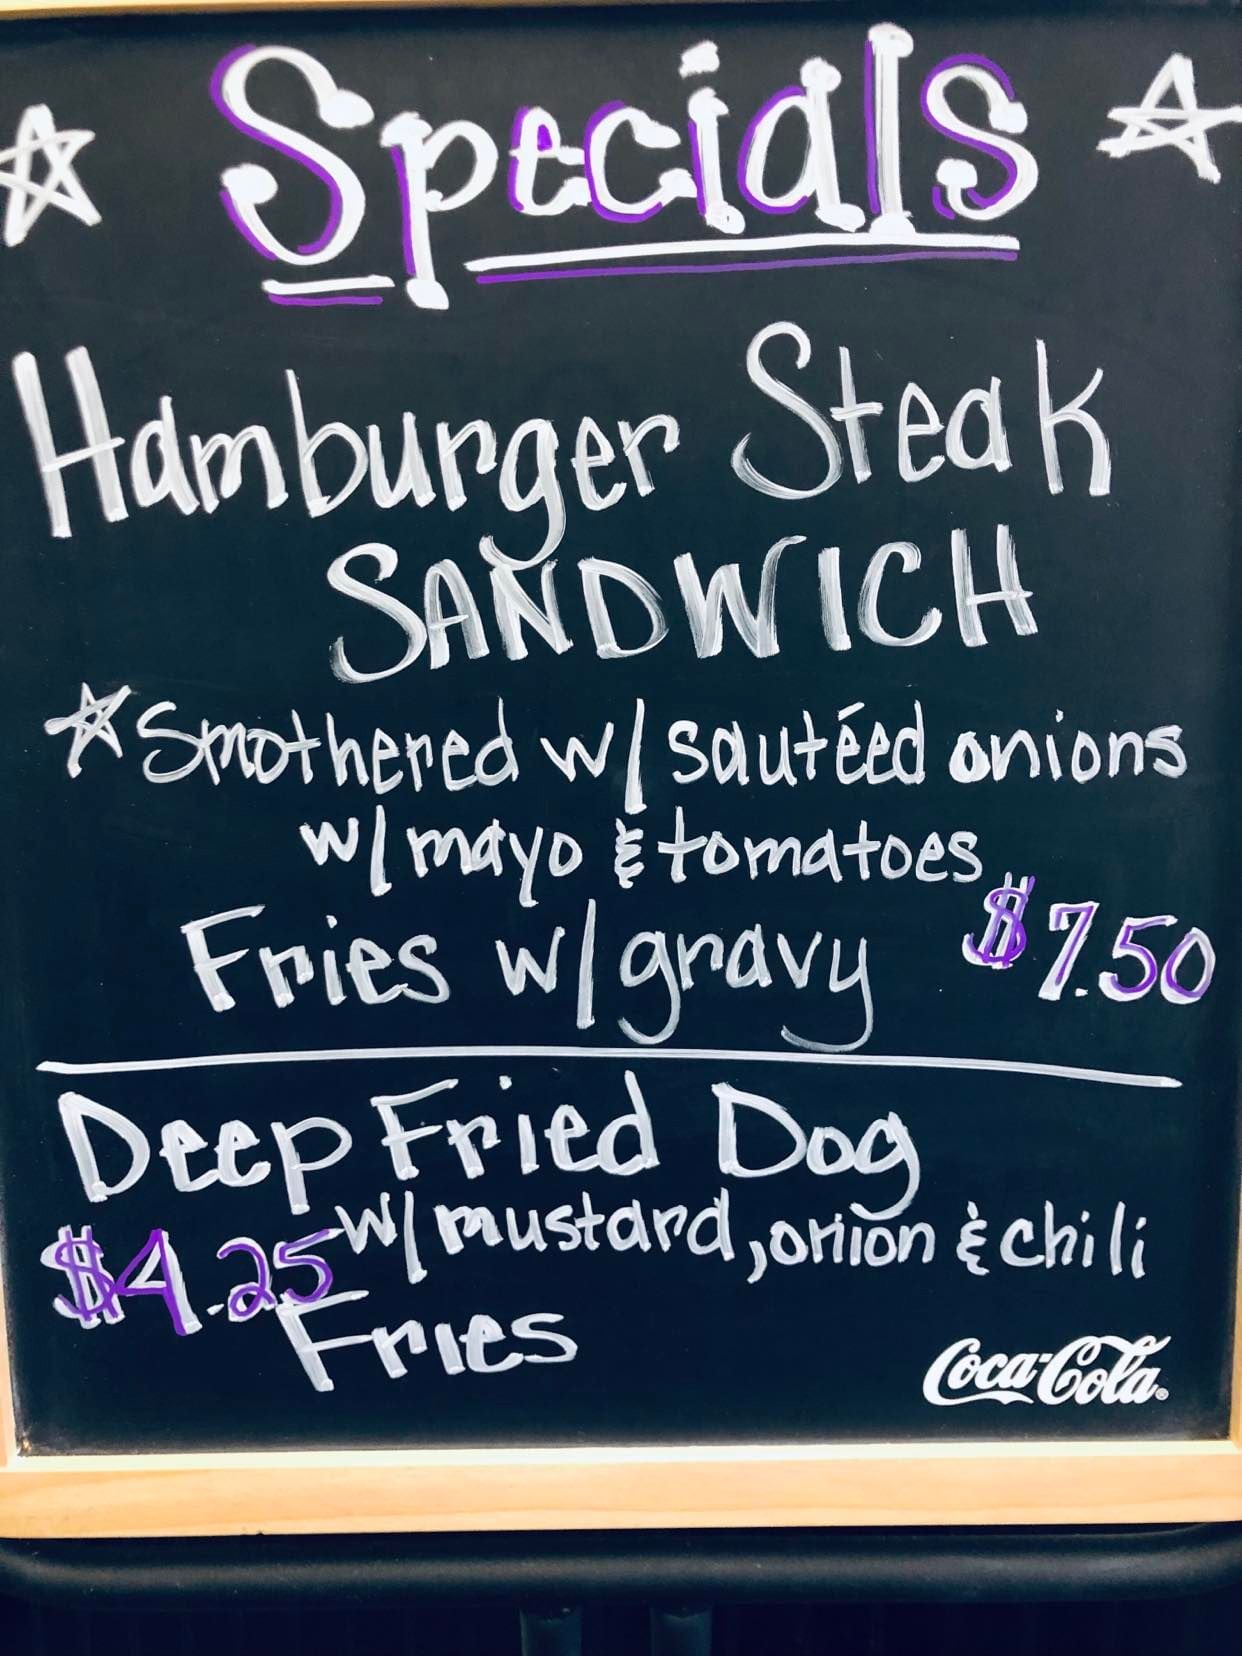 Specials
Hamburger Steak
SANDWICH
Smothered w/ sautéed onions
w/ mayo & tomatoes
Fries w/ gravy $7.50
Deep Fried Dog
w/ mustard, onion & chili
$4.25
Fries
Coca-Cola®